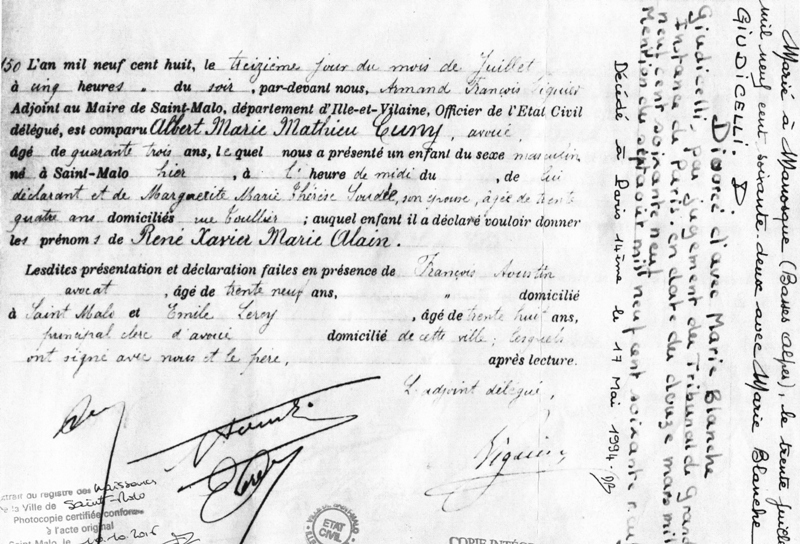 150 L'an mil neuf cent huit, le treizième jour du mois de Juillet
à cinq heures " du soir, par-devant nous, Armand François Viguier
Adjoint au Maire de Saint-Malo, département d'Ille-et-Vilaine, Officier de l'Etat Civil
délégué, est comparu Albert Marie Mathieu Cuny, avoué,
âgé de quarante trois ans, lequel nous a présenté un enfant du sexe masculin
né à Saint-Malo hier, à l'heure de midi du , de lui
déclarant et de Marguerite Marie Thérèse Soudée, son épouse, âgée de trente
quatre ans domiciliés rue Toullier ; auquel enfant il a déclaré vouloir donner
les prénoms de René Xavier Marie Alain.
Lesdites présentation et déclaration faites en présence de François
avocat , âgé de trente neuf ans, " domicilié
à Saint Malo et Emile Leroy , âgé de trente huit ans,
principal clerc d'avoué domicilié de cette ville ; lesquels
ont signé avec nous et le père, après lecture.
L'adjoint délégué,
Viguier
Extrait du registre des Naissances
de la Ville de Saint-Malo
Photocopie certifiée conforme
à l'acte original
Saint-Malo, le
VILLE DE SAINT-MALO
ETAT
CIVIL
COPIE INTÉGR
Marié à Manosque (Basses Alpes), le trente juille
mil neuf cent soixante deux avec Marie Blanche
GIUDICELLI. D:
Divorcé d'avec Marie Blanche
Giudicelli, par jugement du Tribunal de Grand
Instance de Paris, en date du douze mars mil
neuf cent soixante neuf.
Mention du sept avril mil neuf cent soixante neuf
Décédé à Paris 14ème le 17 Mai 1994.